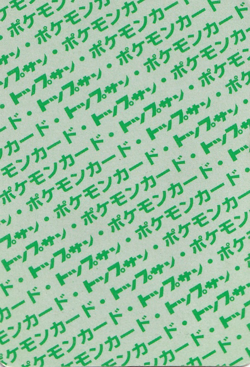 ポケモンカード・
トップサン・ポケモンカード・
ポケモンカード・トップサン・
トップサン・ポケモンカード・
ポケモンカード・トップサン・
トップサン・ポケモンカード・
ポケモンカード・トップサン・
トップサン・ポケモンカード・
ポケモンカード・トップサン・
トップサン・ポケモンカード・
ポケモンカード・トップサン・
トップサン・ポケモンカード・
ポケモンカード・トップサン・
ポケモンカード・